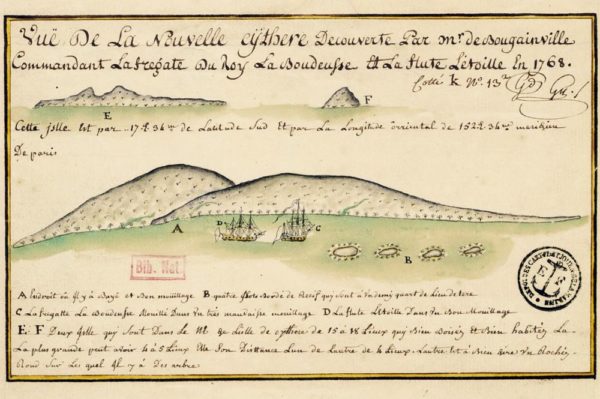 Vuë De La Nouvelle Cÿthere Decouverte Par mr. de Bougainville
Commandant La fregate Du Roy La Boudeusse Et La flute L'etoille En 1768.
Cotté k No. 13
E
F
Cette Isle Est par 17d. 34m. de Latitude Sud Et par La Longitude orriental de 152d. 36m. meridien
De paris
A
D
C
B
Bib. Nat
A Endroit où jl y à Bayë et Bon mouillage B quatre jlots Bordé de Recif qui sont à un demy quart de Lieu de terre
C La fregatte La Boudeuse Mouillé Dans un tres mauvaise mouillage D La flute L'etoille Dans un Bon Mouillage
E. F Deux jslle qui sont Dans Le de Lille de cythere de 15 à 18 Lieux qui Bien Boisés et Bien habitéz La
La plus grande peut avoir 4 à 5 Lieux Elle son Disttance L'un de Lautre de 4 Lieux Lautre Est à Bien Dire un Rochéz
Rond sur Les quel jl y à Des arbre.